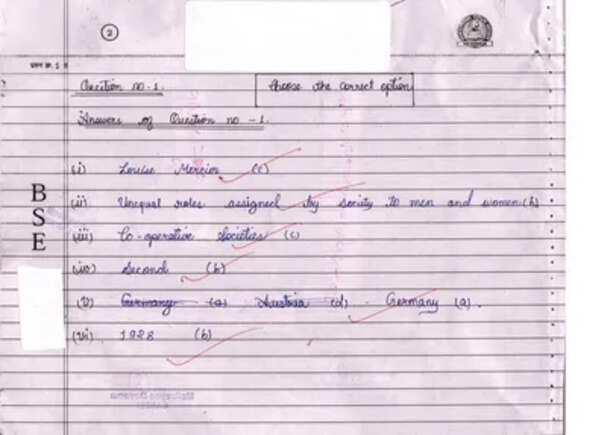 2
प्रश्न क्र. 1
Question no - 1. Choose the correct option
Answers of Question no - 1.
(i) Louise Mercier (c)
(ii) Unequal roles assigned by society to men and women (b)
(iii) Co-operative Societies (c)
(iv) Second (b)
(v) Germany (a) Austria (d) Germany (a).
(vi) 1928 (b)
B
S
E